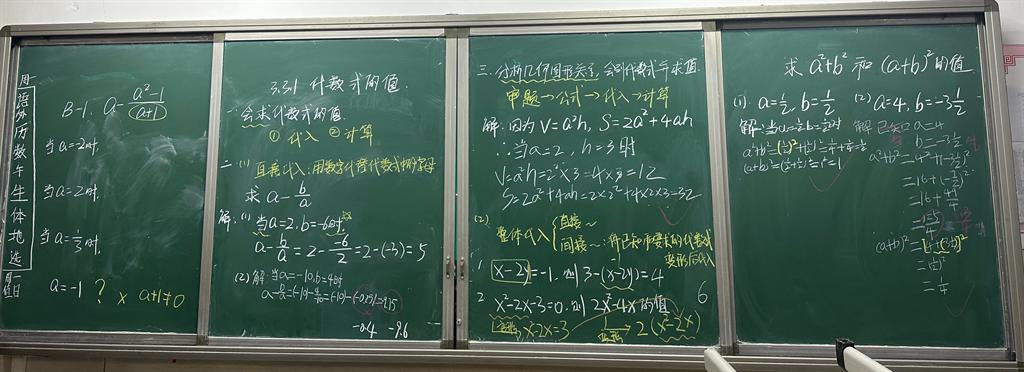 周一
语
外
历
数
午
生
体
地
选
周一
值日
B-1. a - (a²-1)/(a+1)
当a=2时,
当a=2时,
当a=1/3时,
a=-1 ? × a+1≠0
3.3.1 代数式的值
一会求代数式的值
① 代入 ② 计算
二、(1) 直接代入:用数字代替代数式中的字母
求 a - b/a
解:(1) 当a=2, b=-6时
a - b/a = 2 - (-6)/2 = 2-(-3) = 5
(2) 解:当a=-10, b=4时
-0.4 -9.6
三. 分析几何图形关系,会列代数式并求值.
审题→公式→代入→计算
解:因为 V=a²h, S=2a²+4ah
∴当a=2, h=3时
V=a²h=2²×3=4×3=12
S=2a²+4ah=2×2²+4×2×3=32
(2)
整体代入 { 直接~
间接~:将已知或要求的代数式
变形后代入
1. x-2y=-1, 则 3-(x-2y)=4
2. x²-2x-3=0, 则 2x²-4x的值 6
x²-2x=3 变形→ 2(x²-2x)
求 a²+b² 和 (a+b)² 的值
(1) a=1/2, b=1/2 (2) a=4, b=-3 1/2
解:当a=1/2 b=1/2时
a²+b²=(1/2)²+(1/2)²=1/4+1/4=1/2
(a+b)²=(1/2+1/2)²=1²=1
解:已知 a=4
b=-3 1/2时
a²+b²=4²+(-3 1/2)²
=16+(-7/2)²
=16+49/4
(a+b)²
=(1/2)²
=1/4